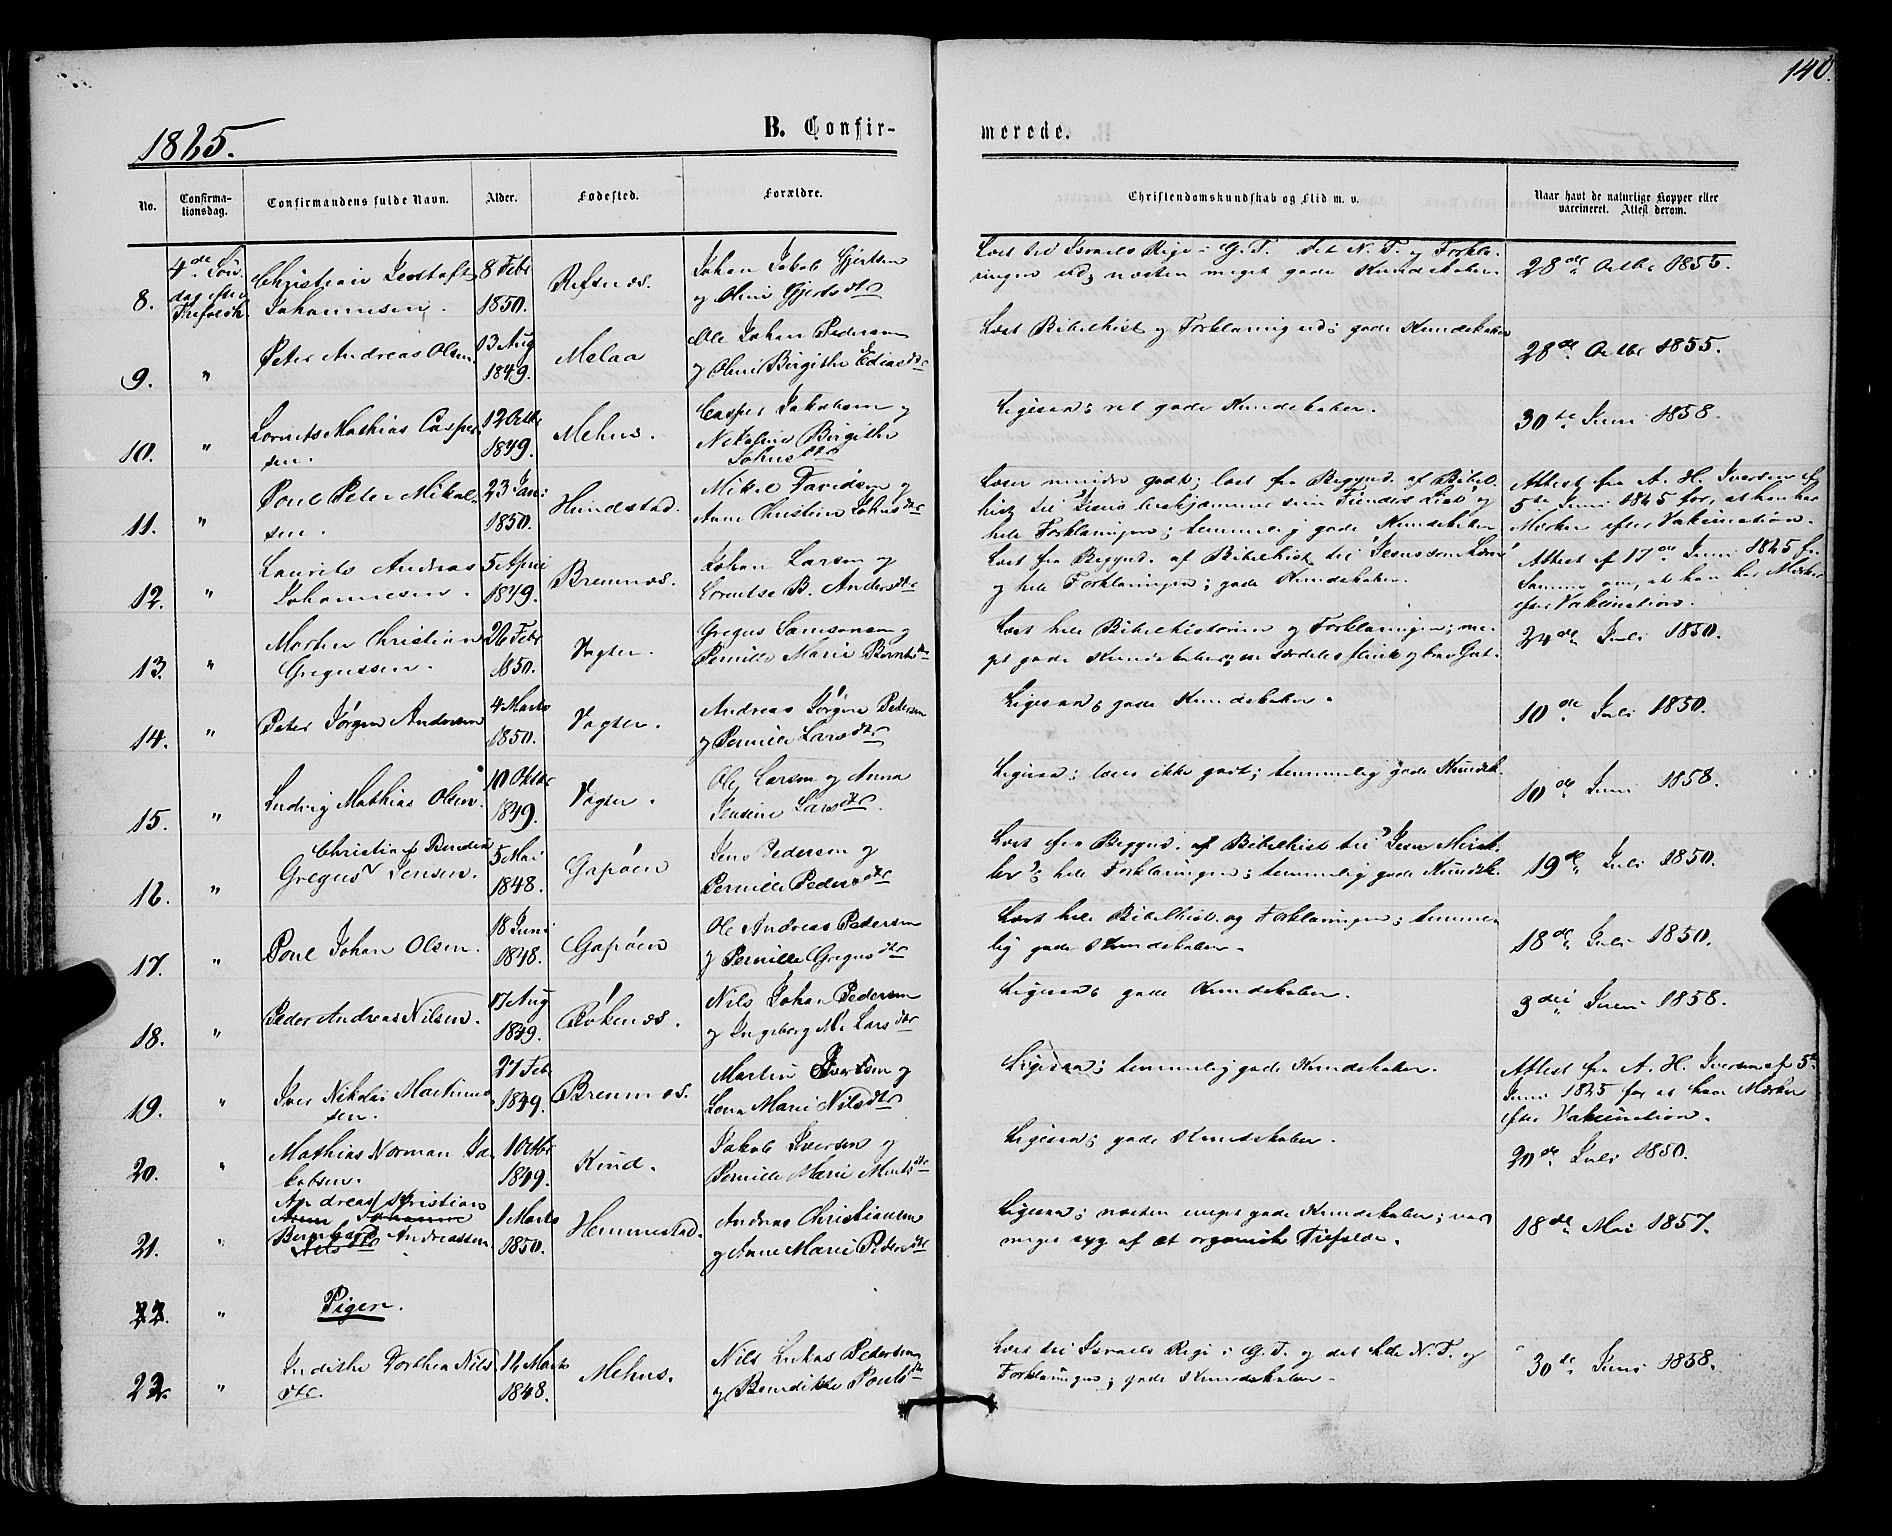 140.
1865.
B. Confir-
merede.
No.
Confirma-
tionsdag.
Confirmandens fulde Navn.
Alder.
Fødested.
Forældre.
Christendomskundskab og Flid m. v.
Naar havt de naturlige Kopper eller
vaccineret. Attest derom.
8.
4de Søn-
dag efter
Christian
Johannesen.
8 Febr
1850.
Refsnæs.
Johan Jakob Gjertsen
og Oline Gjertsdtr
Læst til Israels Rige i G. T. det N. T. og Forkla-
ringen ud; næsten meget gode Kundskaber.
28de Octbr 1855.
9.
"
Peter Andreas Olsen
13 Aug
1849.
Melaa
Ole Johan Pedersen
og Oline Birgithe Ediasdtr
Læst Bibelhist og Forklaring ud; gode Kundskaber
28de Octbr 1855.
10.
"
Lornits Mathias Casper-
sen.
12 Octbr
1849.
Mehus.
Casper Jakobsen og
Nikoline Birgithe
Johnsdtr
Ligesaa; ret gode Kundskaber.
30te Juni 1858.
11.
"
Poul Peter Mikal-
sen.
23 Jan:
1850.
Hundstad.
Mikal Davidsen og
Anne Christine Johnsdtr
Læser mindre godt; læst fra Begynd. af Bibel-
hist til "Jesus beskjæmmer sine Fienders List og
hele Forklaringen; temmelig gode Kundskaber
Attest fra A. H. Iversen af
5te Juni 1865 for, at han har
Mærker efter Vakcination.
12.
"
Laurits Andreas
Johannesen.
5 April
1849.
Bremnæs.
Johan Larsen og
Lorentse B. Andersdtr
Læst fra Begynd. af Bibelhist til "Jesus som Lærer"
og hele Forklaringen; gode Kundskaber.
Attest af 17de Juni 1865 fra
Samme om, at han har Mærker
efter Vakcination.
13.
"
Morten Christian
Gregussen.
26 Febr
1850.
Vogter.
Gregus Samsonsen og
Pernille Marie Berntsdtr
Læst hele Bibelhistorien og Forklaringen; me-
get gode Kundskaber; en særdeles flink og brav Gut.
24de Juli 1850.
14.
"
Peter Jørgen Andersen
4 Marts
1850.
Vogter.
Andreas Jørgen Pedersen
og Pernille Larsdtr
Ligesaa; gode Kundskaber.
10de Juli 1850.
15.
"
Ludvig Mathias Olsen.
10 Oktbr
1849.
Vogter.
Ole Larsen og Anna
Jensine Larsdtr.
Ligesaa; læser ikke godt; temmelig gode Kundsk.
10de Juni 1858.
16.
"
Christian
Gregus Jensen.
5 Mai
1848.
Gapøen
Jens Pedersen og
Pernille Pedersdtr
Læst fra Begynd. af Bibelhist til "Jesu Mirak-
ler"; hele Forklaringen; temmelig gode Kundsk.
19de Juli 1850.
17.
"
Poul Johan Olsen.
18 Juni
1848.
Gapøen
Ole Andreas Pedersen
og Pernille Gregusdtr
Læst hele Bibelhist. og Forklaringen; temme-
lig gode Kundskaber.
18de Juli 1850.
18.
"
Peder Andreas Nilsen.
17 Aug
1849.
Røkenæs.
Nils Johan Pedersen
og Ingeborg M. Larsdtr
Ligesaa; gode Kundskaber.
3die Juni 1858.
19.
"
Iver Nikolai Martinus-
sen.
27 Febr
1849.
Bremnæs.
Martin Iversen og
Lena Marie Nilsdtr
Ligesaa; temmelig gode Kundskaber.
Attest fra A. H. Iversen af 5te
Juni 1865 for at have Mærker
efter Vakcination.
20.
"
Mathias Norman Ja-
kobsen.
1 Octbr
1849.
Kind.
Jakob Iversen og
Pernille Marie
Ligesaa; gode Kundskaber.
20de Juli 1850.
21.
"
Andreas Christian
Bernhard Andreassen
1 Marts
1850.
Hemmestad.
Andreas Christiansen
og Anne Marie Pedersdtr
Ligesaa; næsten meget gode Kundskaber; var
meget syg af et organisk Tilfælde.
18de Mai 1857.
22.
"
Piger.
22.
"
Indithe Dorthea Nils-
dtr.
16 Marts
1848.
Mehus.
Nils Lukas Pedersen
og Bendikke Poulsdtr
Læst til Israels Rige i G. T. og det hele N. T. og
Forklaringen; gode Kundskaber.
30te Juni 1858.